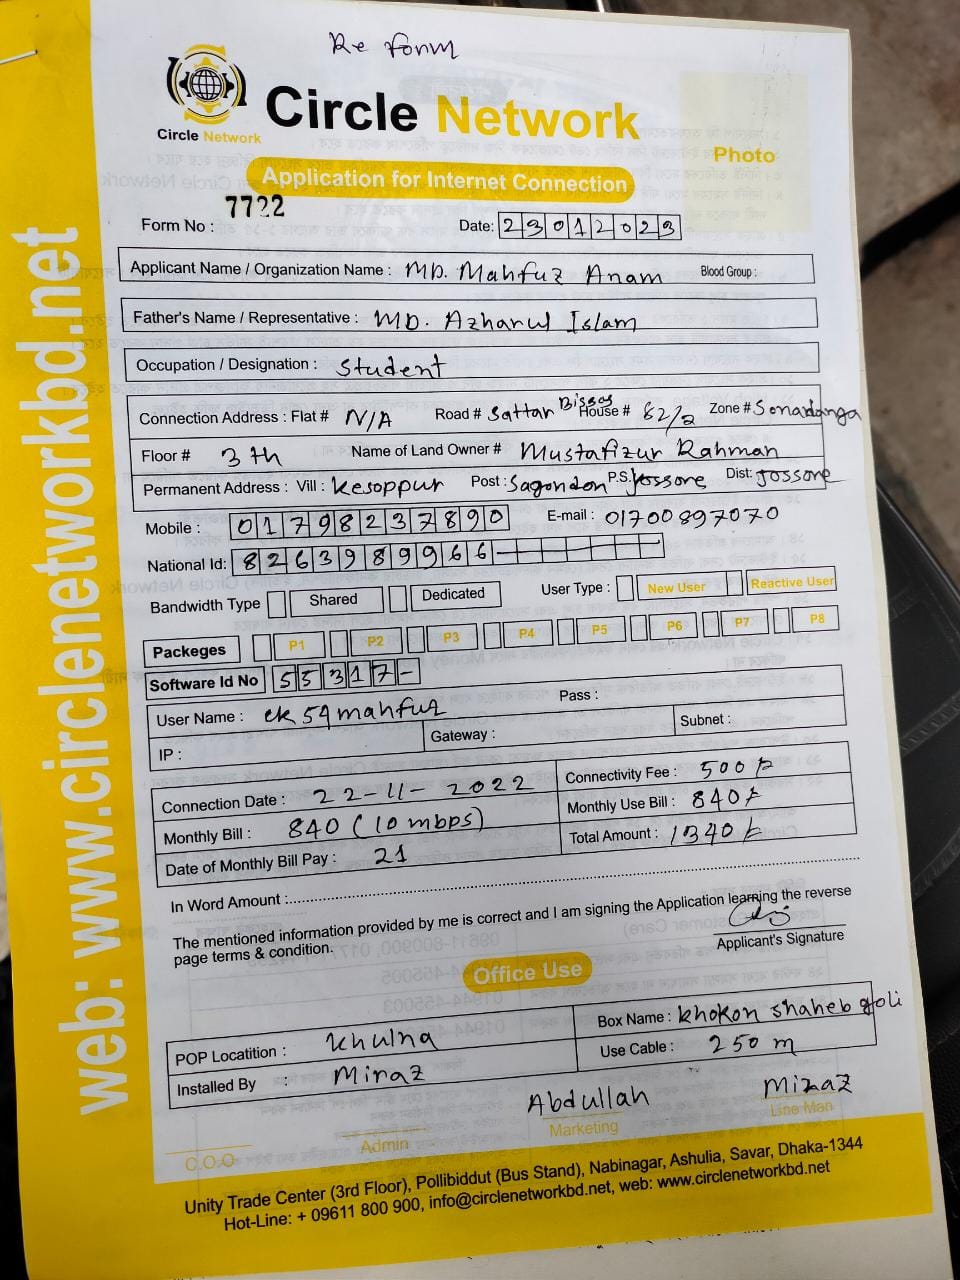 Re form
Circle Network
Circle Network
Photo
Application for Internet Connection
Form No : 7722
Date: 23012023
Applicant Name / Organization Name : MD. Mahfuz Anam Blood Group :
Father's Name / Representative : MD. Azharul Islam
Occupation / Designation : Student
Connection Address : Flat # N/A Road # Sattar Bissas House # 82/2 Zone # Sonadanga
Floor # 3th Name of Land Owner # Mustafizur Rahman
Permanent Address : Vill : Kesoppur Post : Sagordon P.S. Jossore Dist: Jossore
Mobile : 01798237890 E-mail : 01700897070
National Id: 8263989966-
Bandwidth Type Shared Dedicated User Type : New User Reactive User
Packeges P1 P2 P3 P4 P5 P6 P7 P8
Software Id No 55317-
User Name : ck59mahfuz Pass :
IP : Gateway : Subnet :
Connection Date : 22-11-2022 Connectivity Fee : 500/-
Monthly Bill : 840 (10 mbps) Monthly Use Bill : 840/-
Date of Monthly Bill Pay : 21 Total Amount : 1340/-
In Word Amount :
The mentioned information provided by me is correct and I am signing the Application learning the reverse
page terms & condition.
Applicant's Signature
Office Use
POP Locatition : Khulna Box Name : Khokon shaheb goli
Installed By : Miraz Use Cable : 250 m
Abdullah Miraz
C.O.O Admin Marketing Line Man
Unity Trade Center (3rd Floor), Pollibiddut (Bus Stand), Nabinagar, Ashulia, Savar, Dhaka-1344
Hot-Line: + 09611 800 900, info@circlenetworkbd.net, web: www.circlenetworkbd.net
web: www.circlenetworkbd.net